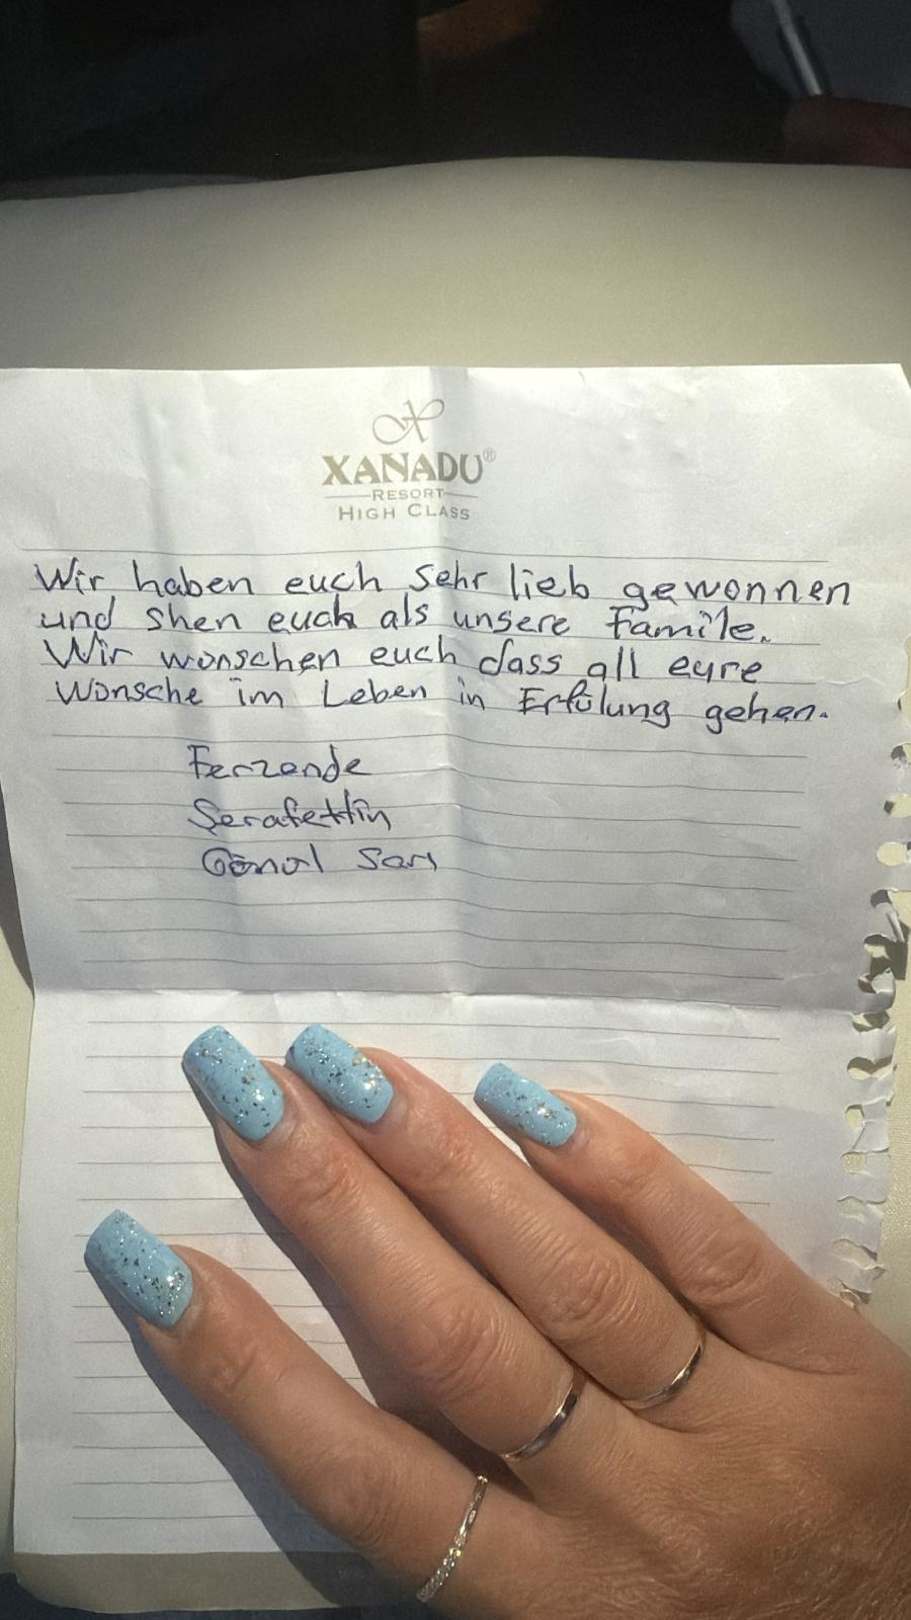 XANADU®
RESORT
HIGH CLASS
Wir haben euch sehr lieb gewonnen
und shen euch als unsere famile.
Wir wonschen euch dass all eure
Wonsche im Leben in Erfülung gehen.
Ferzende
Şerafettin